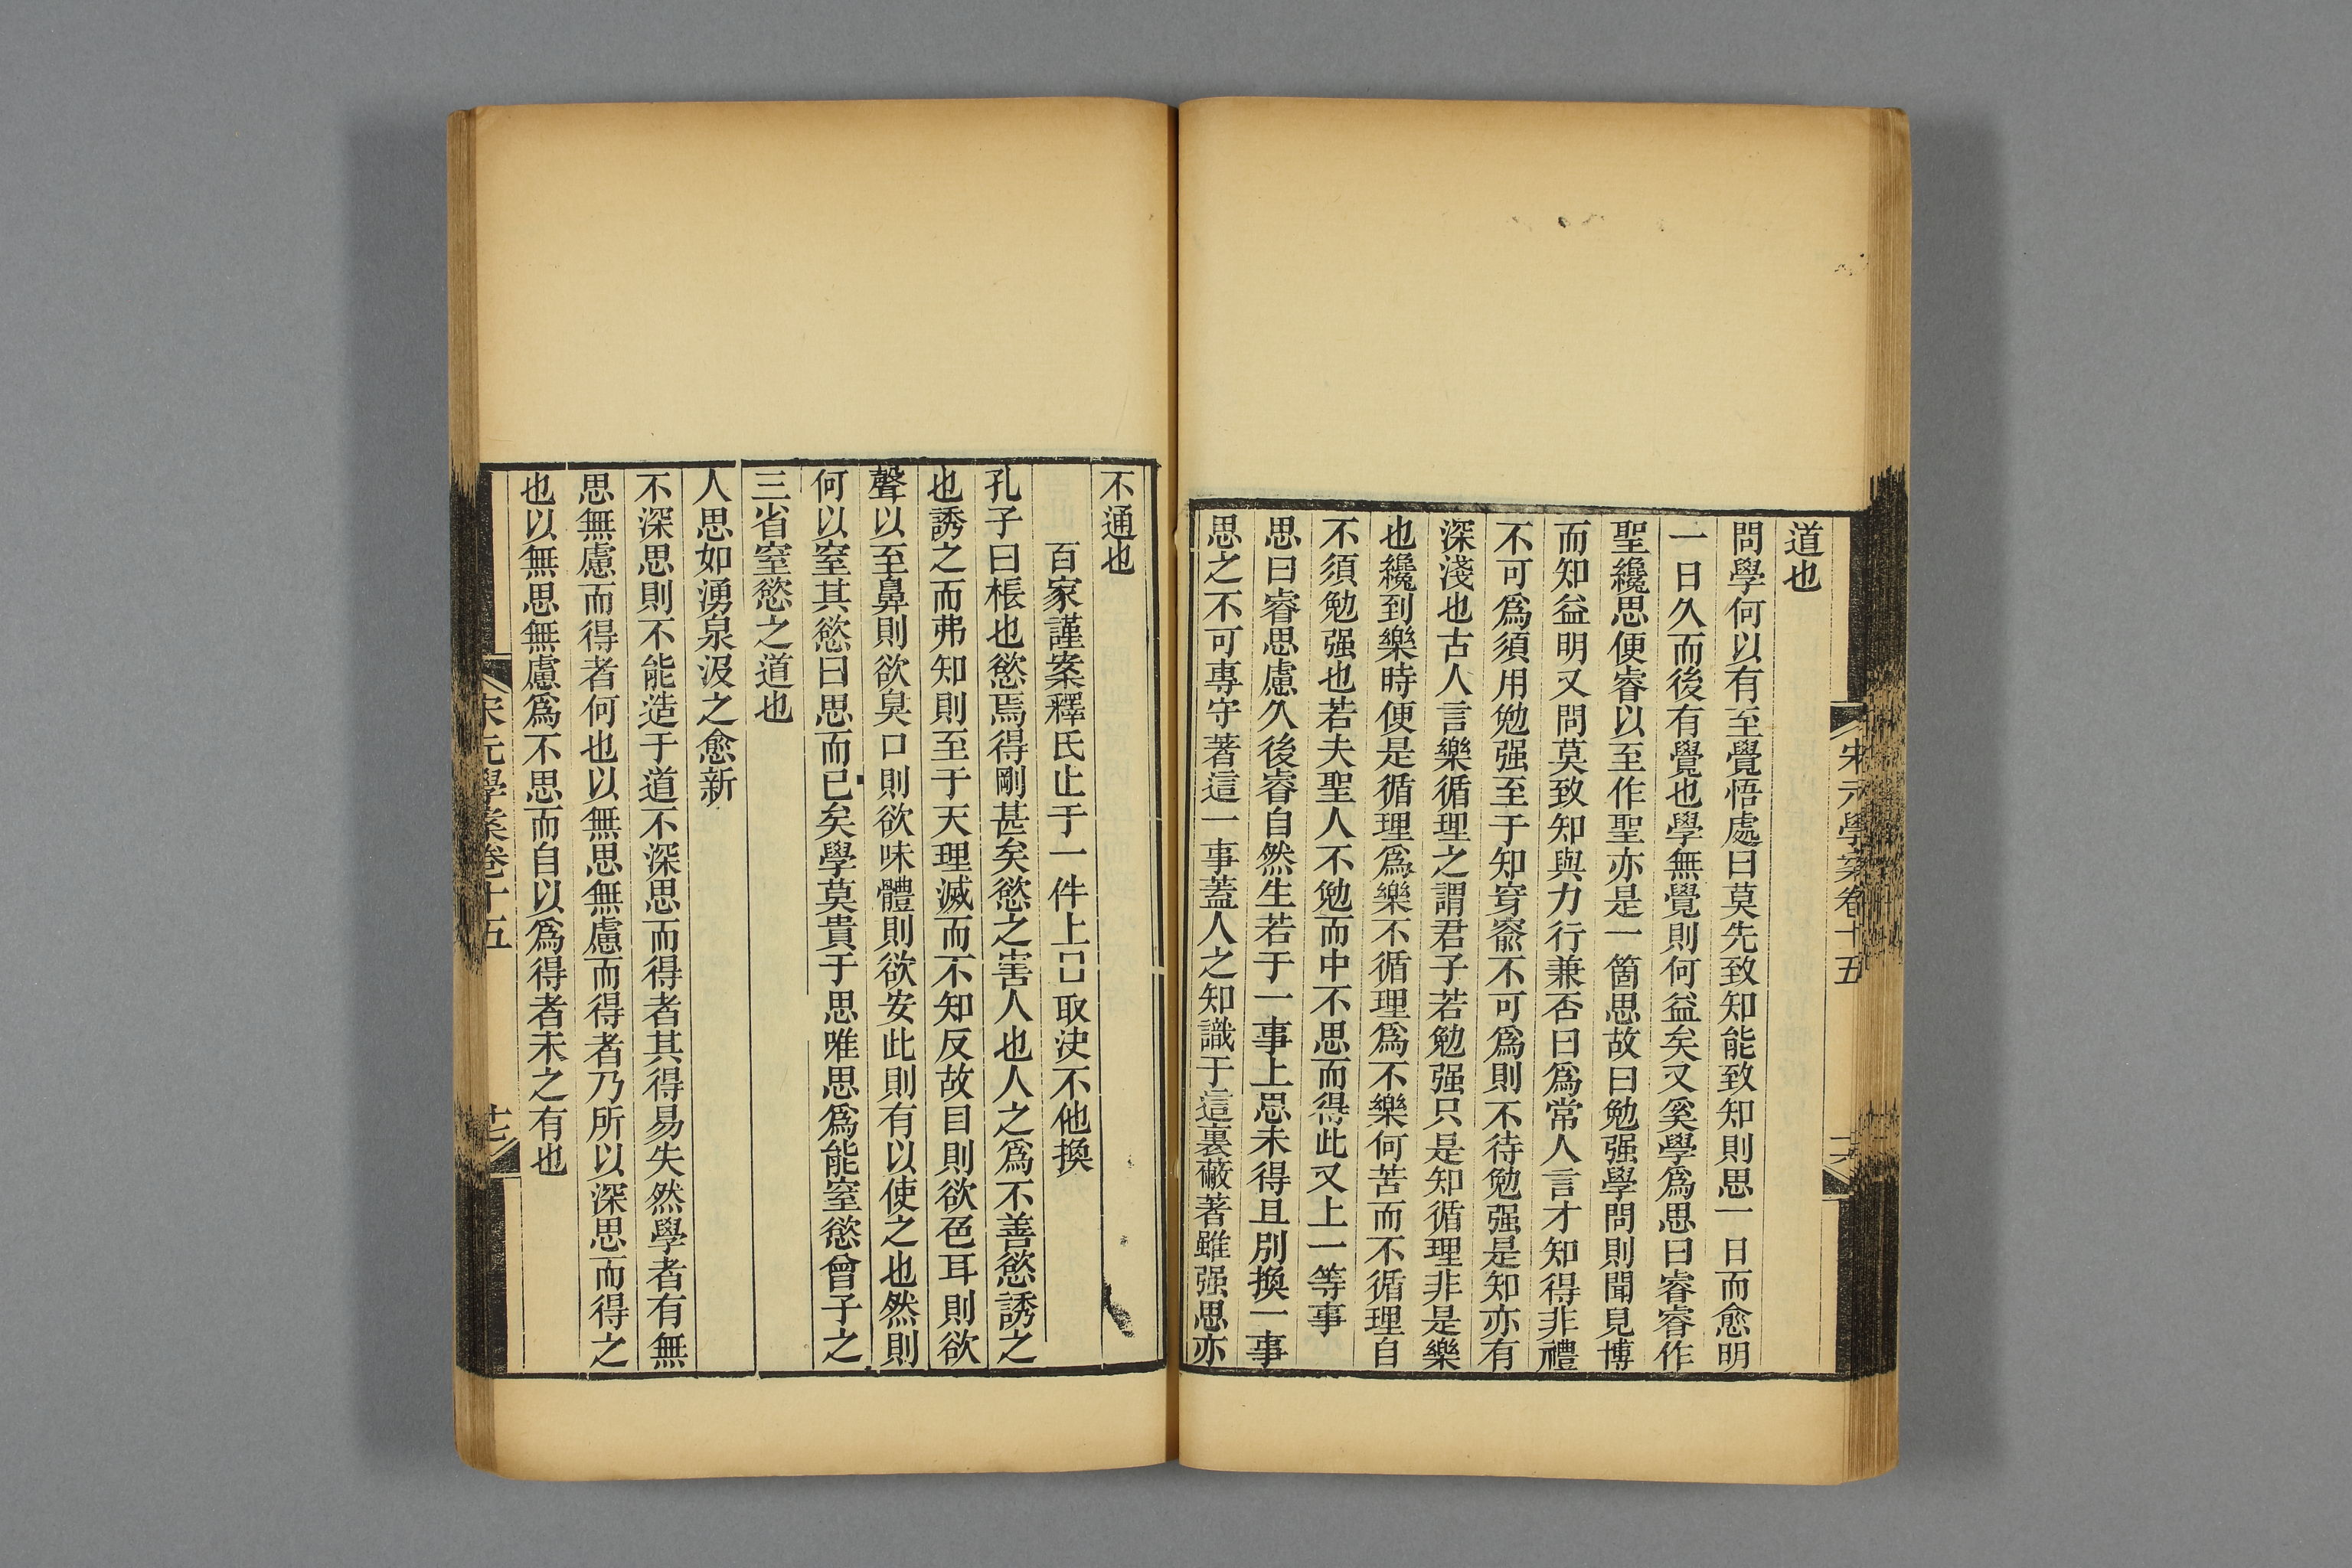 道也
問學何以有至覺悟處曰莫先致知能致知則思一日而愈明
一日久而後有覺也學無覺則何益矣又奚學爲思曰睿睿作
聖纔思便睿以至作聖亦是一箇思故曰勉强學問則聞見博
而知益明又問莫致知與力行兼否曰爲常人言才知得非禮
不可爲須用勉强至于知穿窬不可爲則不待勉强是知亦有
深淺也古人言樂循理之謂君子若勉强只是知循理非是樂
也纔到樂時便是循理爲樂不循理爲不樂何苦而不循理自
不須勉强也若夫聖人不勉而中不思而得此又上一等事
思曰睿思慮久後睿自然生若于一事上思未得且別換一事
思之不可專守著這一事蓋人之知識于這裏蔽著雖强思亦
宋元學案卷十五
不通也
百家謹案釋氏止于一件上口取决不他換
孔子曰棖也慾焉得剛甚矣慾之害人也人之爲不善慾誘之
也誘之而弗知則至于天理滅而不知反故目則欲色耳則欲
聲以至鼻則欲臭口則欲味體則欲安此則有以使之也然則
何以窒其慾曰思而已矣學莫貴于思唯思爲能窒慾曾子之
三省窒慾之道也
人思如湧泉汲之愈新
不深思則不能造于道不深思而得者其得易失然學者有無
思無慮而得者何也以無思無慮而得者乃所以深思而得之
也以無思無慮爲不思而自以爲得者未之有也
宋元學案卷十五